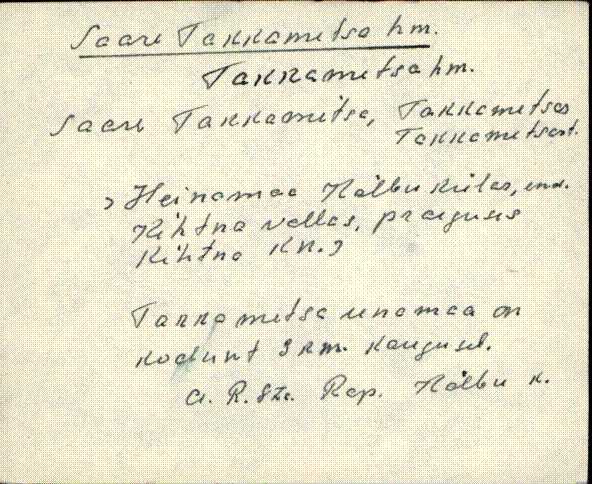 Saare Takkametsa hm.
Takkametsa hm.
Saare Takkametsa, Takkametsas
Takkametsast.
, Heinamaa Kõlbu külas, end.
Kihtna vallas, praeguses
Kihtna KN.,
Takkametsa unamaa on
kodunt 3 km. kaugusel.
Rap. Kõlbu k.